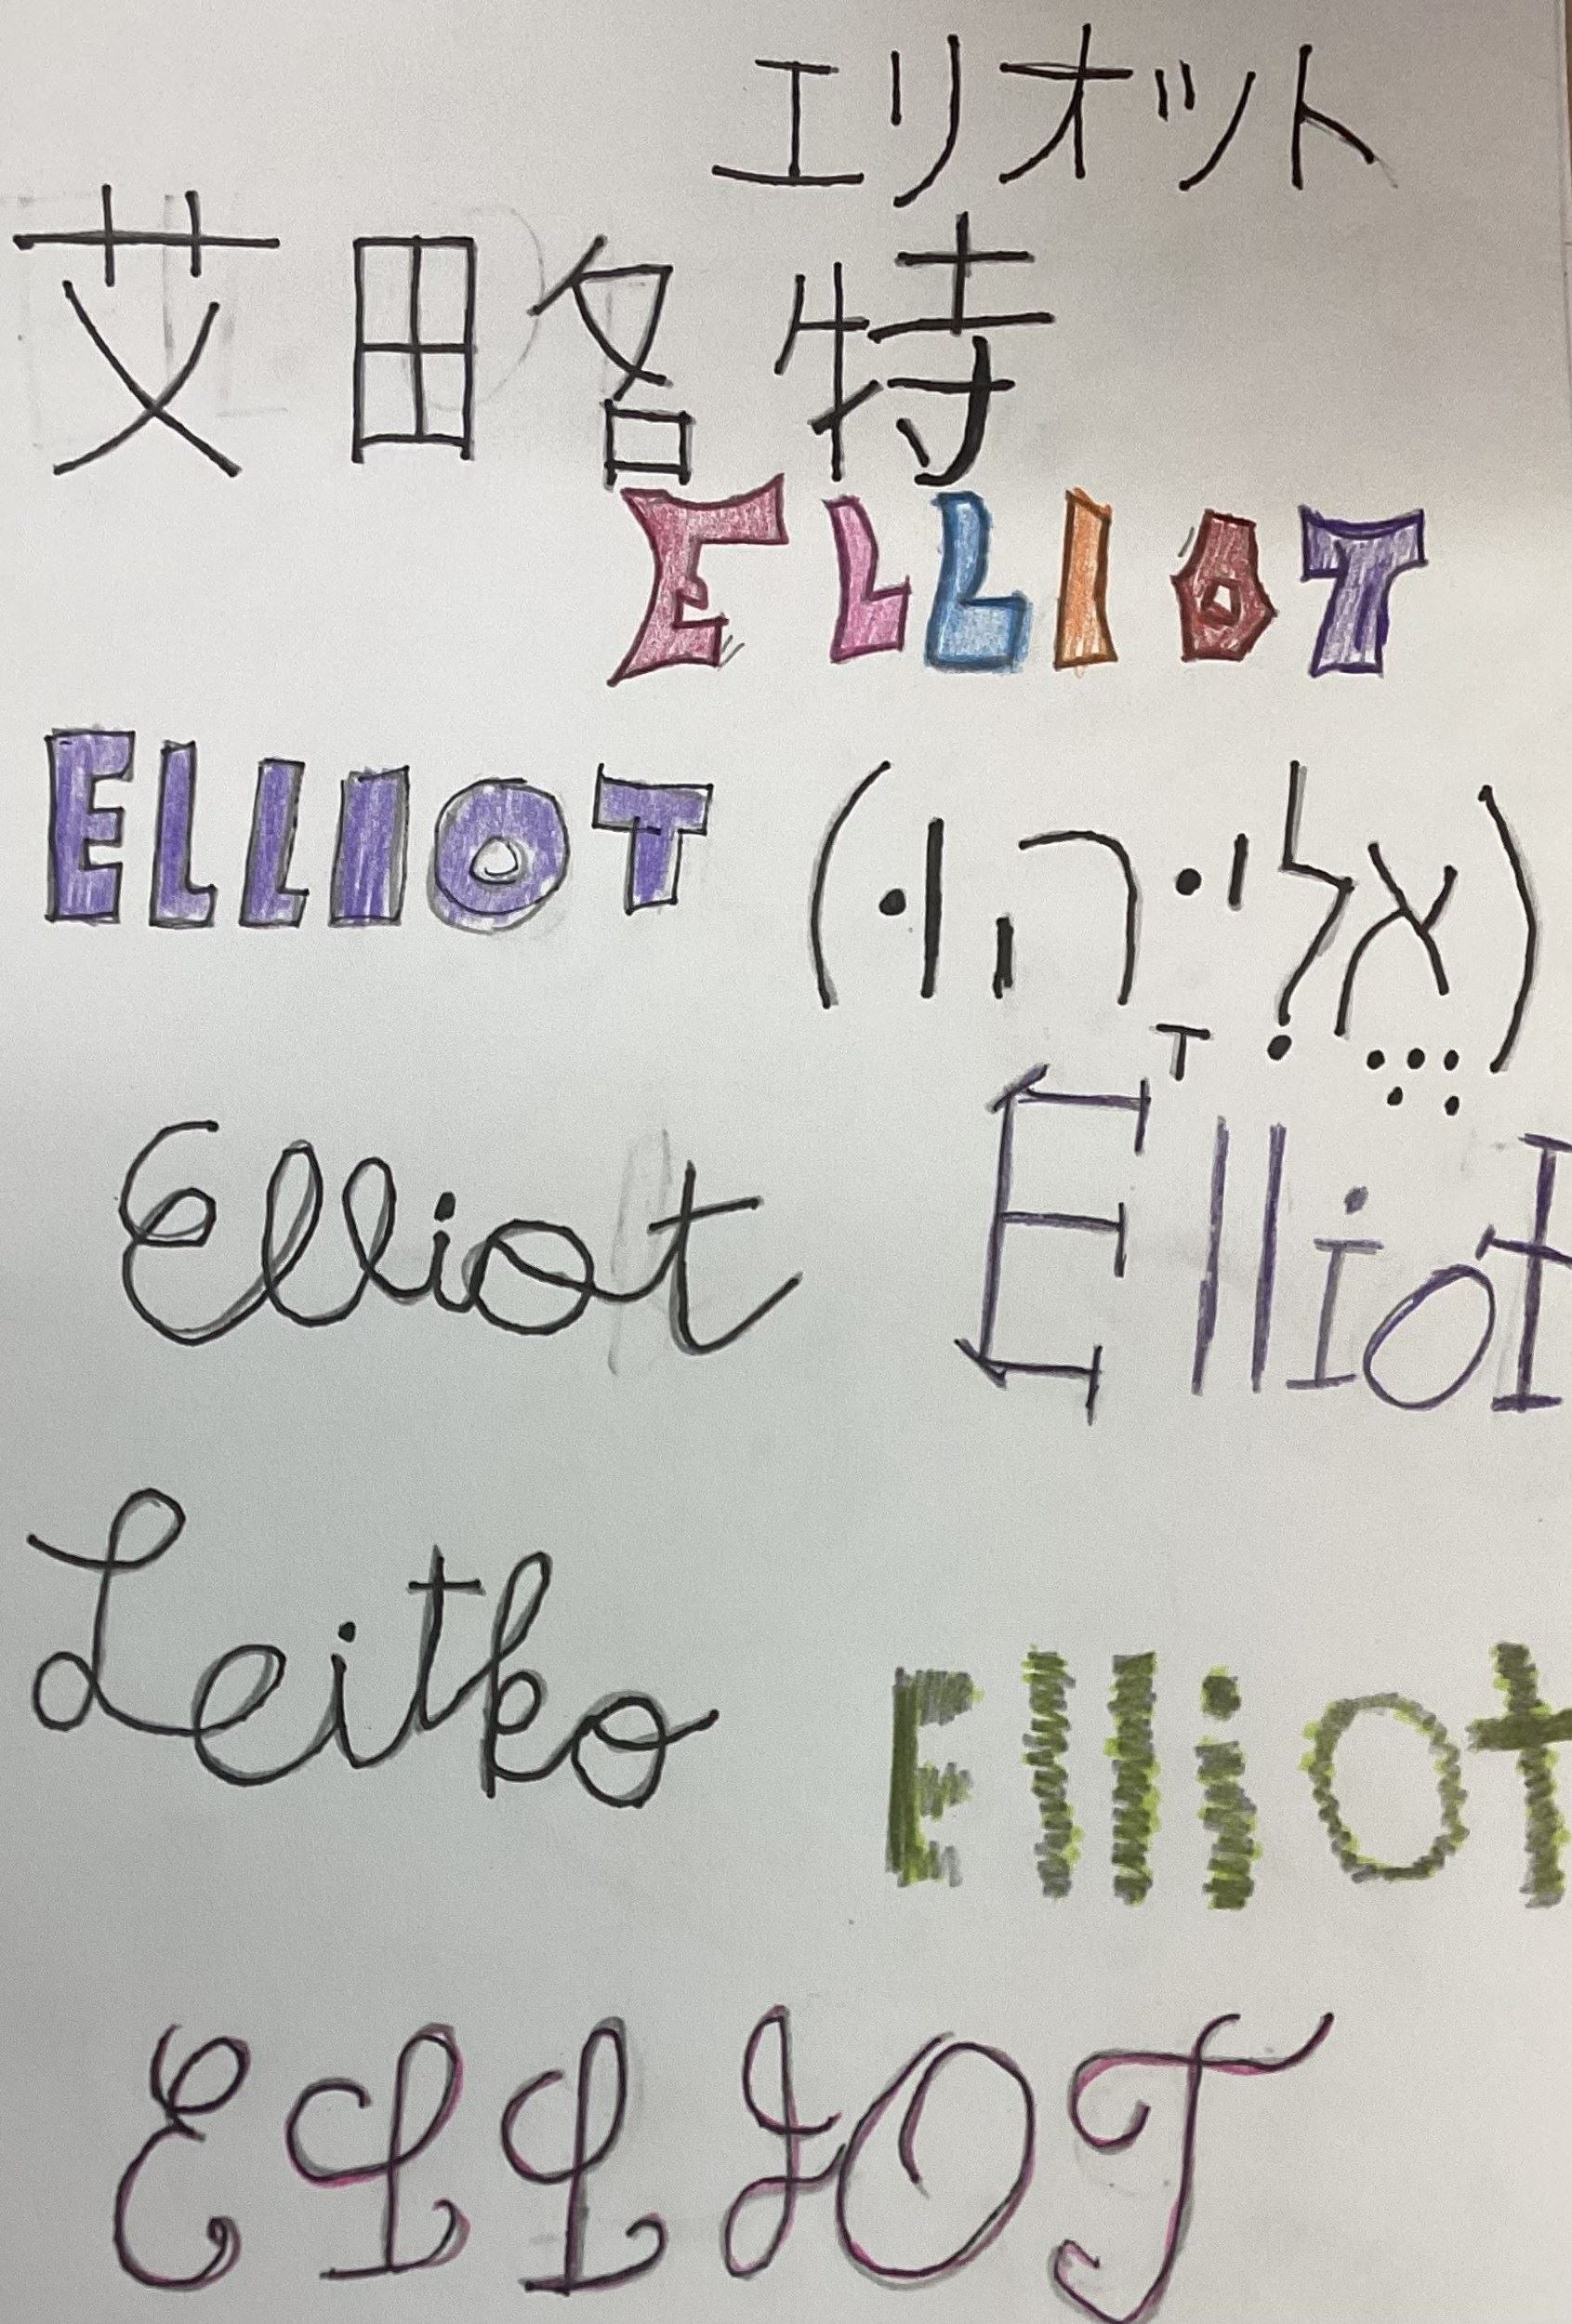 エリオット
艾略特
ELLIOT
ELLIOT
(אֱלִיָהוּ)
Elliot
Elliot
Leitko
Elliot
ELLIOT